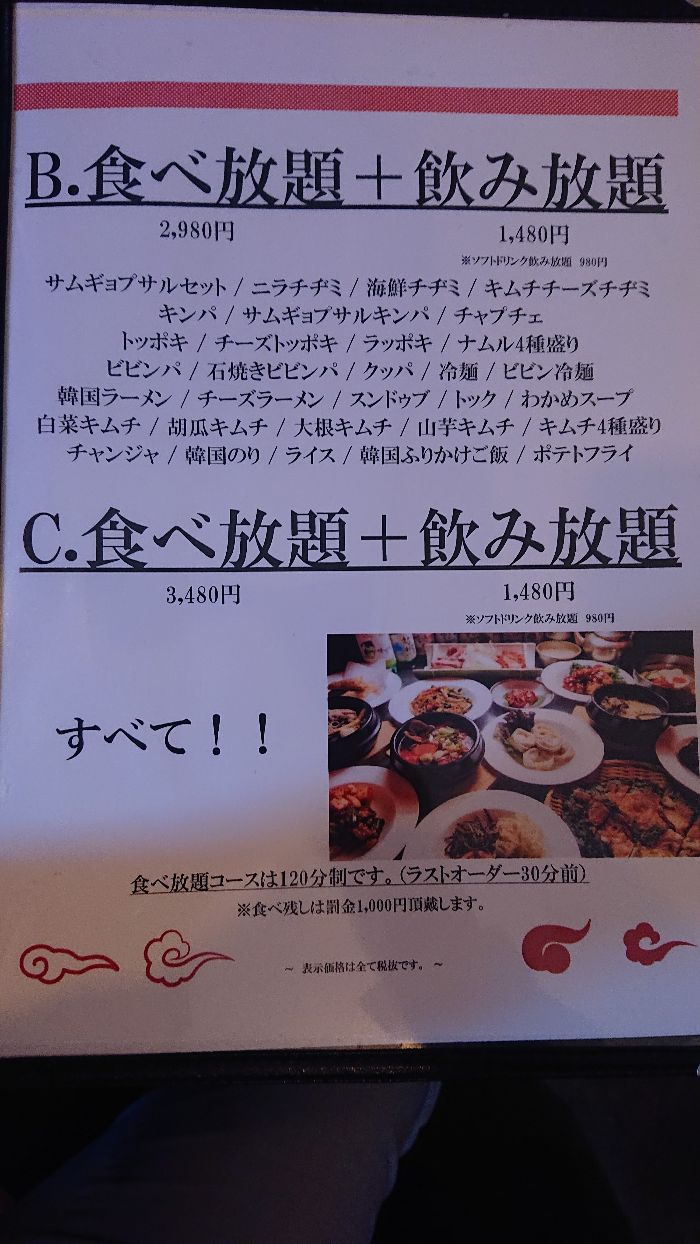 B.食べ放題＋飲み放題
2,980円 1,480円
※ソフトドリンク飲み放題 980円
サムギョプサルセット / ニラチヂミ / 海鮮チヂミ / キムチチーズチヂミ
キンパ / サムギョプサルキンパ / チャプチェ
トッポキ / チーズトッポキ / ラッポキ / ナムル4種盛り
ビビンパ / 石焼きビビンパ / クッパ / 冷麺 / ビビン冷麺
韓国ラーメン / チーズラーメン / スンドゥブ / トック / わかめスープ
白菜キムチ / 胡瓜キムチ / 大根キムチ / 山芋キムチ / キムチ4種盛り
チャンジャ / 韓国のり / ライス / 韓国ふりかけご飯 / ポテトフライ
C.食べ放題＋飲み放題
3,480円 1,480円
※ソフトドリンク飲み放題 980円
すべて！！
食べ放題コースは120分制です。(ラストオーダー30分前)
※食べ残しは罰金1,000円頂戴します。
～ 表示価格は全て税抜です。 ～